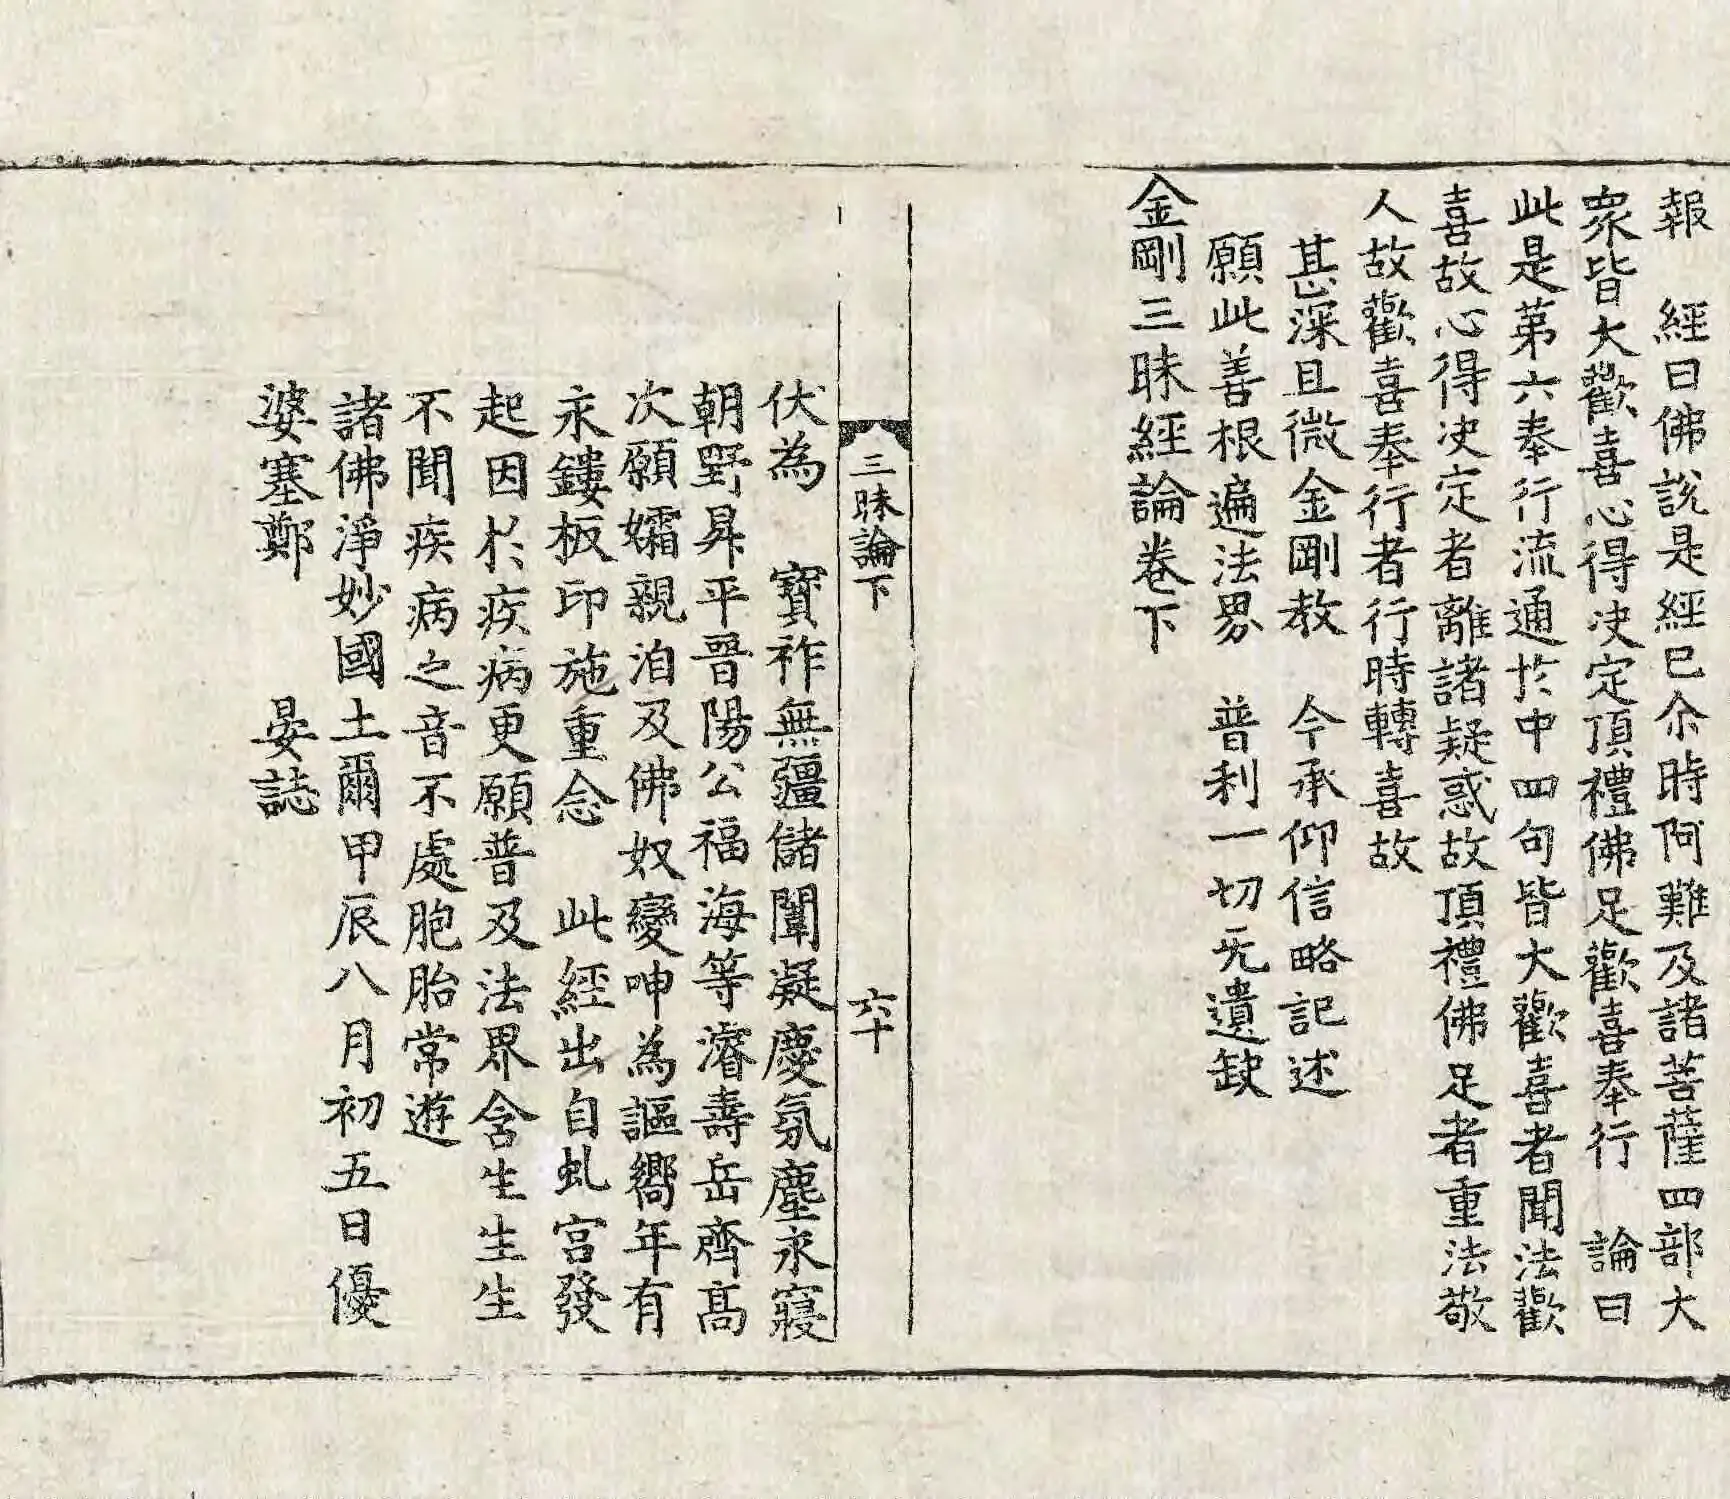 報　經曰佛說是經已尒時阿難及諸菩薩四部大
衆皆大歡喜心得决定頂禮佛足歡喜奉行　論曰
此是第六奉行流通於中四句皆大歡喜者聞法歡
喜故心得决定者離諸疑惑故頂禮佛足者重法敬
人故歡喜奉行者行時轉喜故
甚深且微金剛教　今承仰信略記述
願此善根遍法界　普利一切无遺缺
金剛三昧經論卷下
三昧論下　六十
伏為　寶祚無疆儲闈凝慶氛塵永寢
朝野昇平晉陽公福海等濬壽岳齊高
次願孀親洎及佛奴變呻為謳嚮年有
永鏤板印施重念　此經出自虬宮發
起因於疾病更願普及法界含生生生
不聞疾病之音不處胞胎常遊
諸佛淨妙國土爾甲辰八月初五日優
婆塞鄭　晏誌